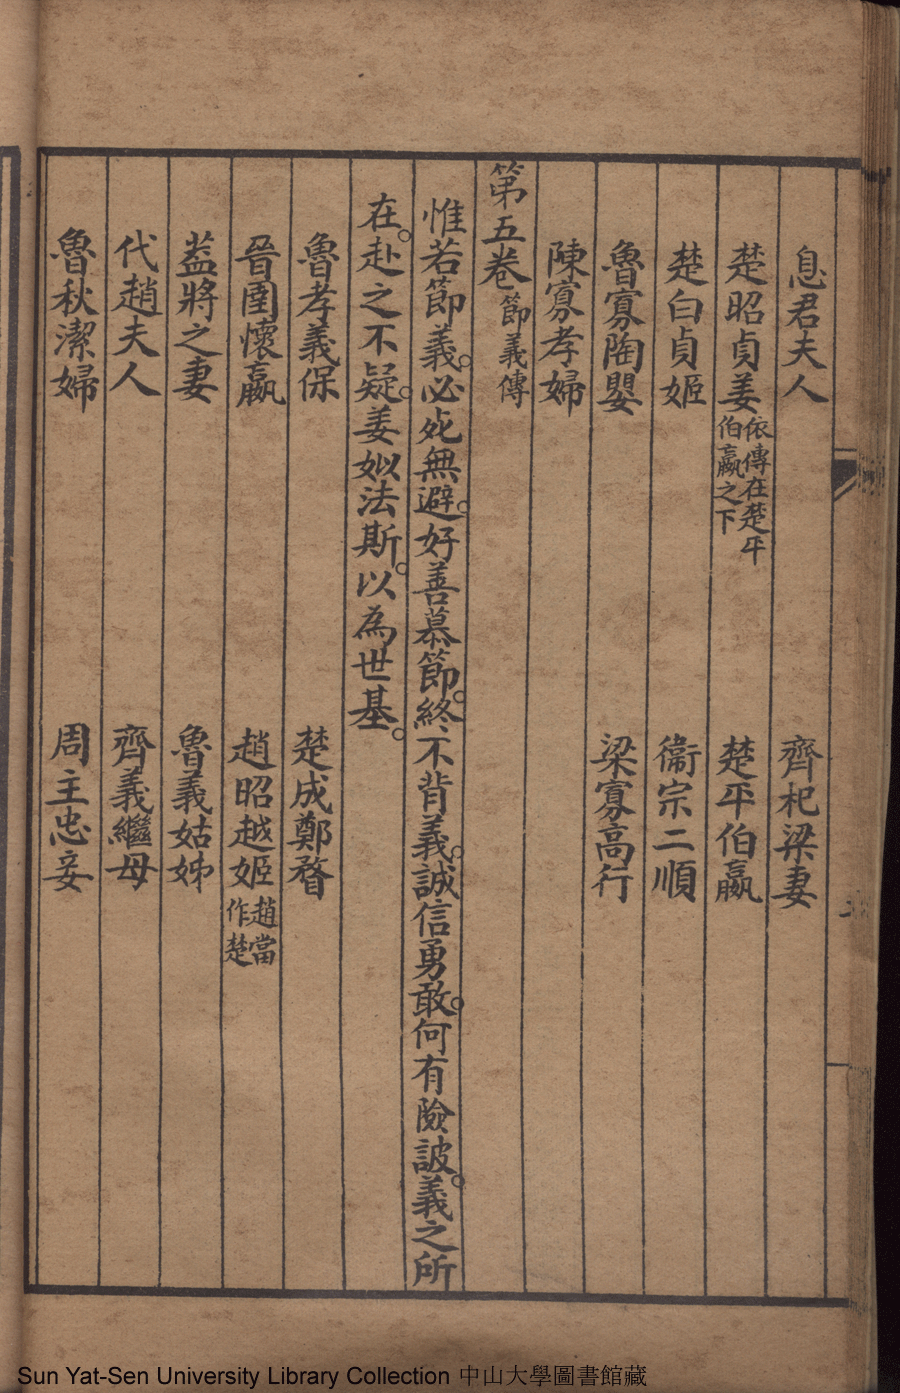 息君夫人　齊杞梁妻
楚昭貞姜依傳在楚平伯嬴之下　楚平伯嬴
楚白貞姬　衞宗二順
魯寡陶嬰　梁寡高行
陳寡孝婦
第五卷節義傳
惟若節義。必死無避。好善慕節。終不背義。誠信勇敢。何有險詖。義之所
在。赴之不疑。姜姒法斯。以為世基。
魯孝義保　楚成鄭瞀
晉圉懷嬴　趙昭越姬趙當作楚
葢將之妻　魯義姑姊
代趙夫人　齊義繼母
魯秋潔婦　周主忠妾
Sun Yat-Sen University Library Collection 中山大學圖書館藏